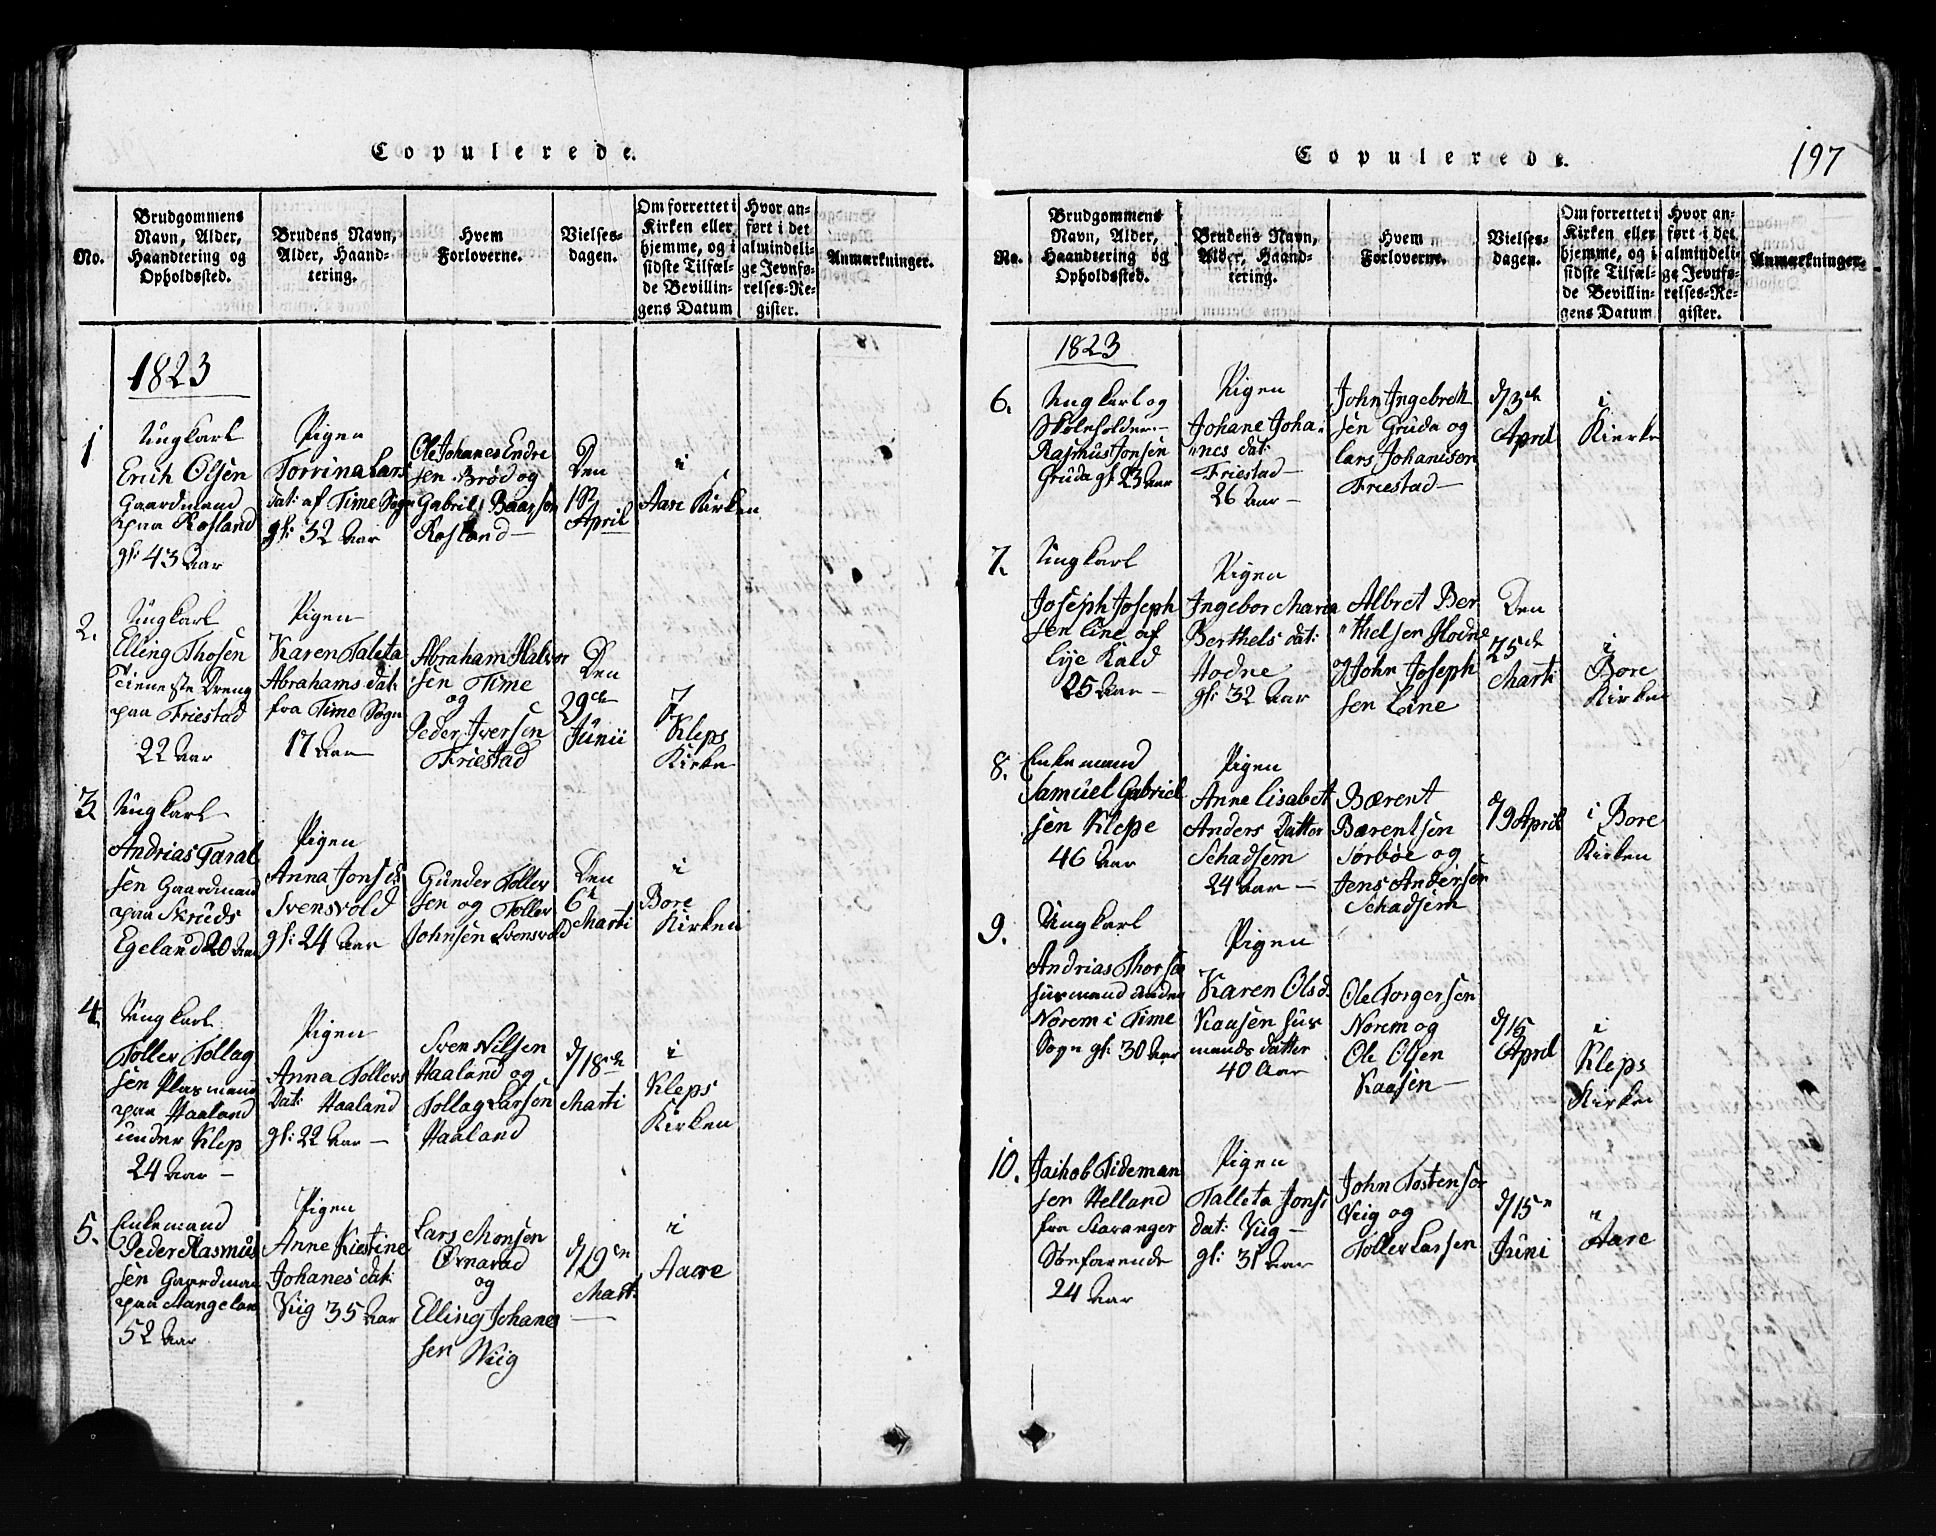 Copulerede.
No.
Brudgommens
Navn, Alder,
Haandtering og
Opholdssted.
Brudens Navn,
Alder, Haand-
tering.
Hvem
Forloverne.
Vielses-
dagen.
Om forrettet i
Kirken eller
hjemme, og i
sidste Tilfæl-
de Bevillin-
gens Datum
Hvor an-
ført i det
almindeli-
ge Jevnfø-
relses-Re-
gister.
Anmærkninger.
1823
1
Ungkarl
Erich Olsen
Gaardmand
paa Rosland
gl: 43 Aar
Pigen
Torrina Lars
dat: af Time Sogn
gl: 32 Aar
Ole Johanes Endre
sen Brød og
Gabriel Baarsen
Rosland
Den
1st
April
i
Aare Kirken
2.
Ungkarl
Elling Thosen
Tieneste Dreng
paa Friestad
22 Aar
Pigen
Karen Taleta
Abrahams dat:
fra Time Sogn
17 Aar
Abraham Halvor
sen Time
og
Peder Iversen
Friestad
Den
29de
Junii
i
Kleps
Kirke
3
Ungkarl
Andrias Taral
sen Gaardmand
paa Skruds
Egeland 20 Aar
Pigen
Anna Jons D
Svensvold
gl: 24 Aar
Gunder Toller
sen og Toller
Johnsen Svensvold
Den
6te
Marti
i
Bore
Kirken
4.
Ungkarl
Toller Tollag
sen Plasmand
paa Haaland
under Klep
24 Aar
Pigen
Anna Tollers
Dat: Haaland
gl: 22 Aar
Sven Nilsen
Haaland og
Tollag Larsen
Haaland
d/18de
Marti
i
Kleps
Kirken
5.
Enkemand
Peder Rasmus
sen Gaardman
paa Stangeland
52 Aar
Pigen
Anne Kiestine
Johanes dat:
Viig 35 Aar
Lars Monsen
Ornarad
og
Elling Johanes
sen Wiig
d/19en
Mart:
i
Aaare
Copulerede.
197
No.
Brudgommens
Navn, Alder,
Haandtering og
Opholdssted.
Brudens Navn,
Alder, Haand-
tering.
Hvem
Forloverne.
Vielses-
dagen.
Om forrettet i
Kirken eller
hjemme, og i
sidste Tilfæl-
de Bevillin-
gens Datum
Hvor an-
ført i det
almindeli-
ge Jevnfø-
relses-Re-
gister.
Anmærkninger.
1823
6.
Ungkarl og
Skoleholder
Rasmus Jonsen
Gruda gl 23 Aar
Pigen
Johane Joha-
nes dat:
Friestad
26 Aar
John Ingebreth
sen Gruda og
Lars Johanisen
Friestad
d/3de
April
i
Kierke
7.
Ungkarl
Joseph Joseph
sen Line af
Lye Kald
25 Aar
Pigen
Ingebor Maria
Berthels dat:
Hodne
gl: 32 Aar
Albret Ber
thelsen Hodne
og John Joseph
sen Line
Den
25de
Marti
i
Bore
Kirken
8.
Enkemand
Samuel Gabriel
sen Klepe
46 Aar
Pigen
Anne Lisabet
Anders Datter
Schadsem
24 Aar
Bærent
Bærentsen
Sørbøe og
Jens Andersen
Schadsem
d/9 April
i Bore
Kirken
9.
Ungkarl
Andrias Thorsen
Husmand under
Norem i Time
Sogn gl: 30 Aar
Pigen
Karen Olsd.
Kaasen Hus
mands datter
40 Aar
Ole Torgersen
Norem og
Ole Olsen
Kaasen
d/16
April
i
Kleps
Kirken
10.
Jaihob Tideman
sen Helland
fra Stavanger
Søefarende
24 Aar
Pigen
Talleta Jons
dat: Viig
gl: 31 Aar
John Tostensen
Viig og
Toller Larsen
d/15n
Juni
Aare